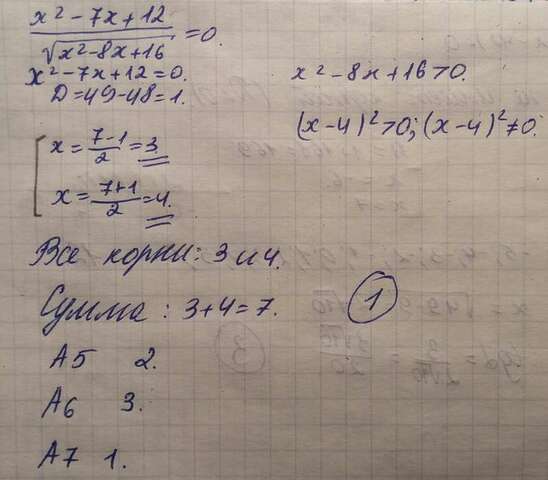 x² - 7x + 12 / √x² - 8x + 16 = 0.
x² - 7x + 12 = 0.
D = 49 - 48 = 1.
x² - 8x + 16 > 0.
(x - 4)² > 0; (x - 4)² ≠ 0.
[ x = 7-1 / 2 = 3
x = 7+1 / 2 = 4.
Все корни: 3 и 4.
Сумма : 3 + 4 = 7.
1
А5 2.
А6 3.
А7 1.